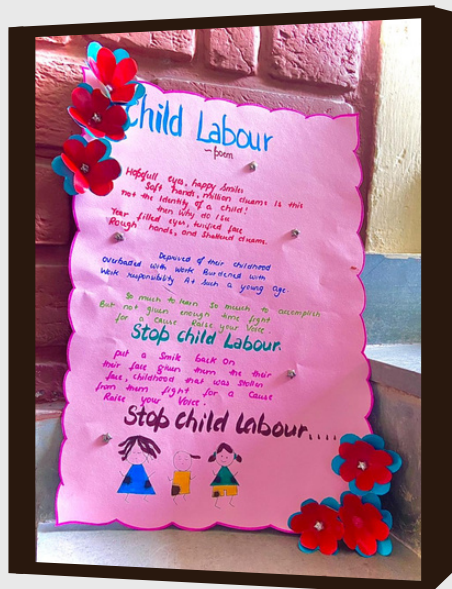 Child Labour
~poem
Hopfull eyes, happy smiles
Soft hands, million dreams is this
not the identity of a child!
then why do I see
Tear filled eyes, terified face
Rough hands, and shattered dreams.
Deprived of their childhood
overloaded with work Burdened with
Work responsibility At such a young age.
So much to learn So much to accomplish
But not given enough time fight
for a cause Raise your Voice.
Stop child Labour.
put a Smile back On
their face given them the their
face, childhood that was stolen
from them fight for a cause
Raise your Voice.
Stop child Labour....